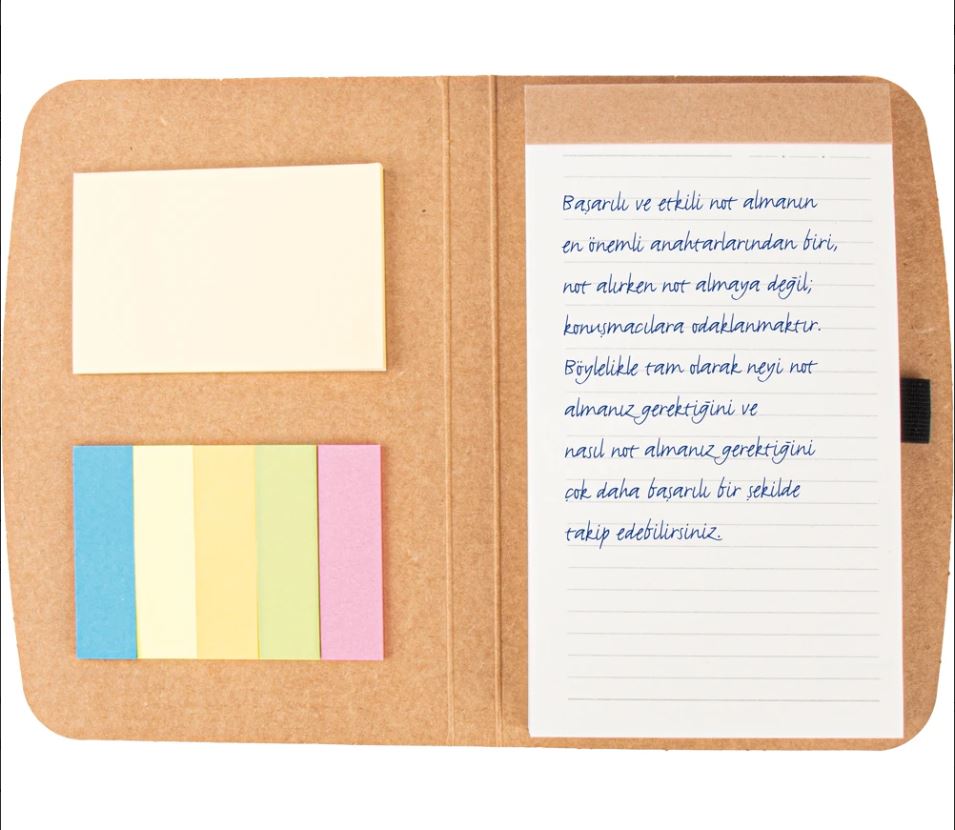 Başarılı ve etkili not almanın
en önemli anahtarlarından biri,
not alırken not almaya değil;
konuşmacılara odaklanmaktır.
Böylelikle tam olarak neyi not
almanız gerektiğini ve
nasıl not almanız gerektiğini
çok daha başarılı bir şekilde
takip edebilirsiniz.